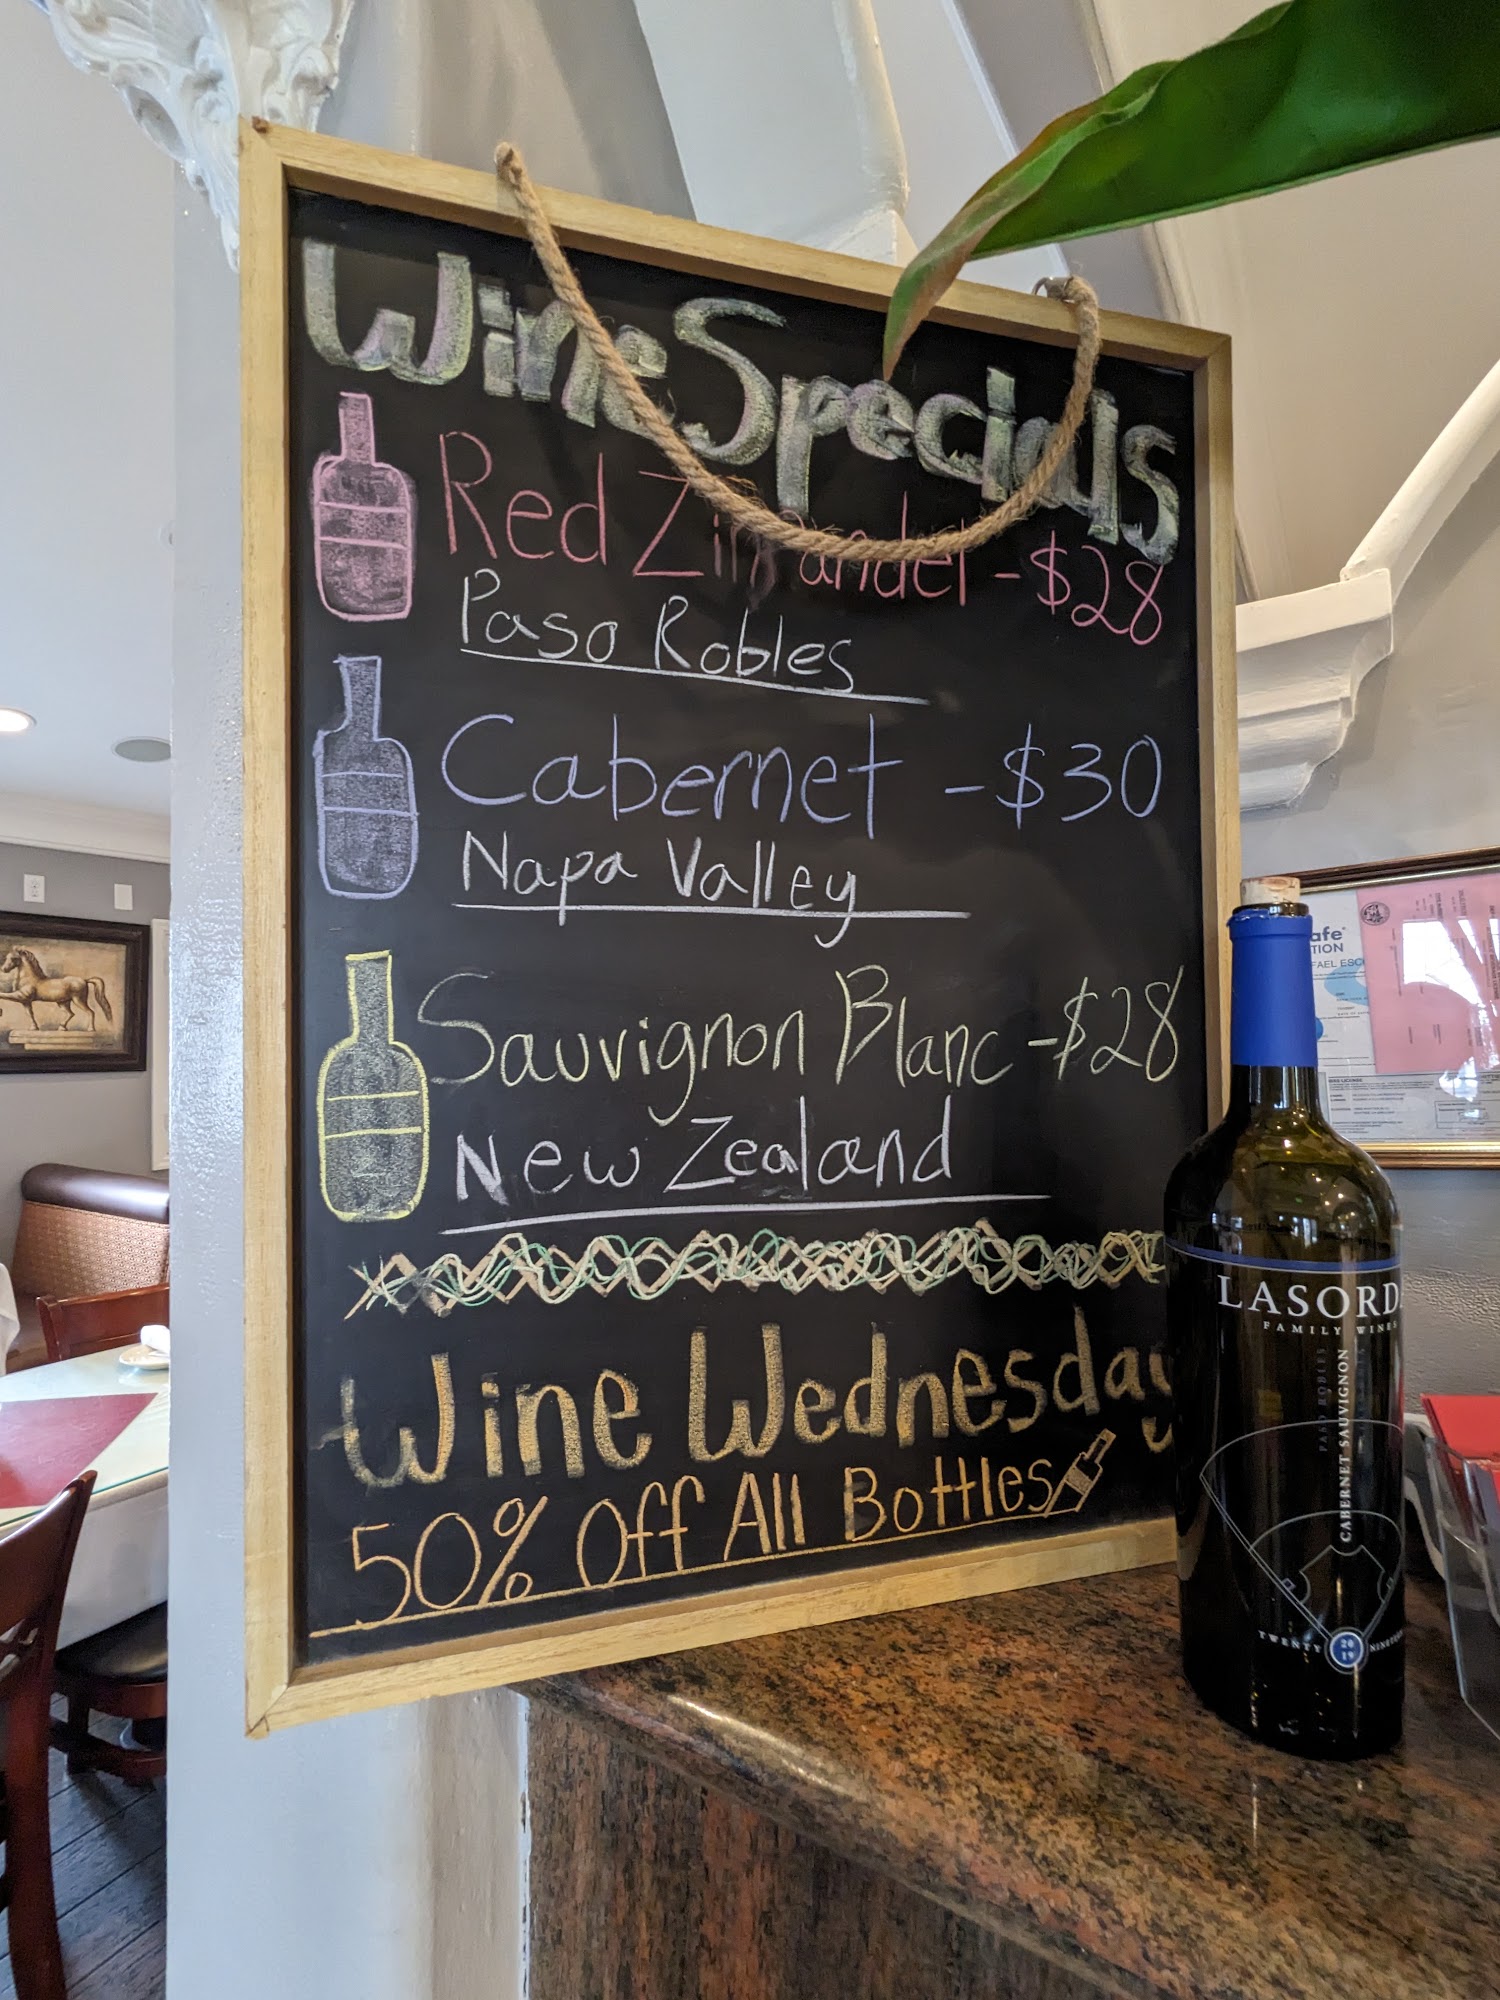 Wine Specials
Red Zinfandel - $28
Paso Robles
Cabernet - $30
Napa Valley
Sauvignon Blanc - $28
New Zealand
Wine Wednesday
50% Off All Bottles
LASORD
FAMILY WINES
PASO ROBLES
CABERNET SAUVIGNON
TWENTY 2019 NINETEEN
afe
TION
FAEL ESC